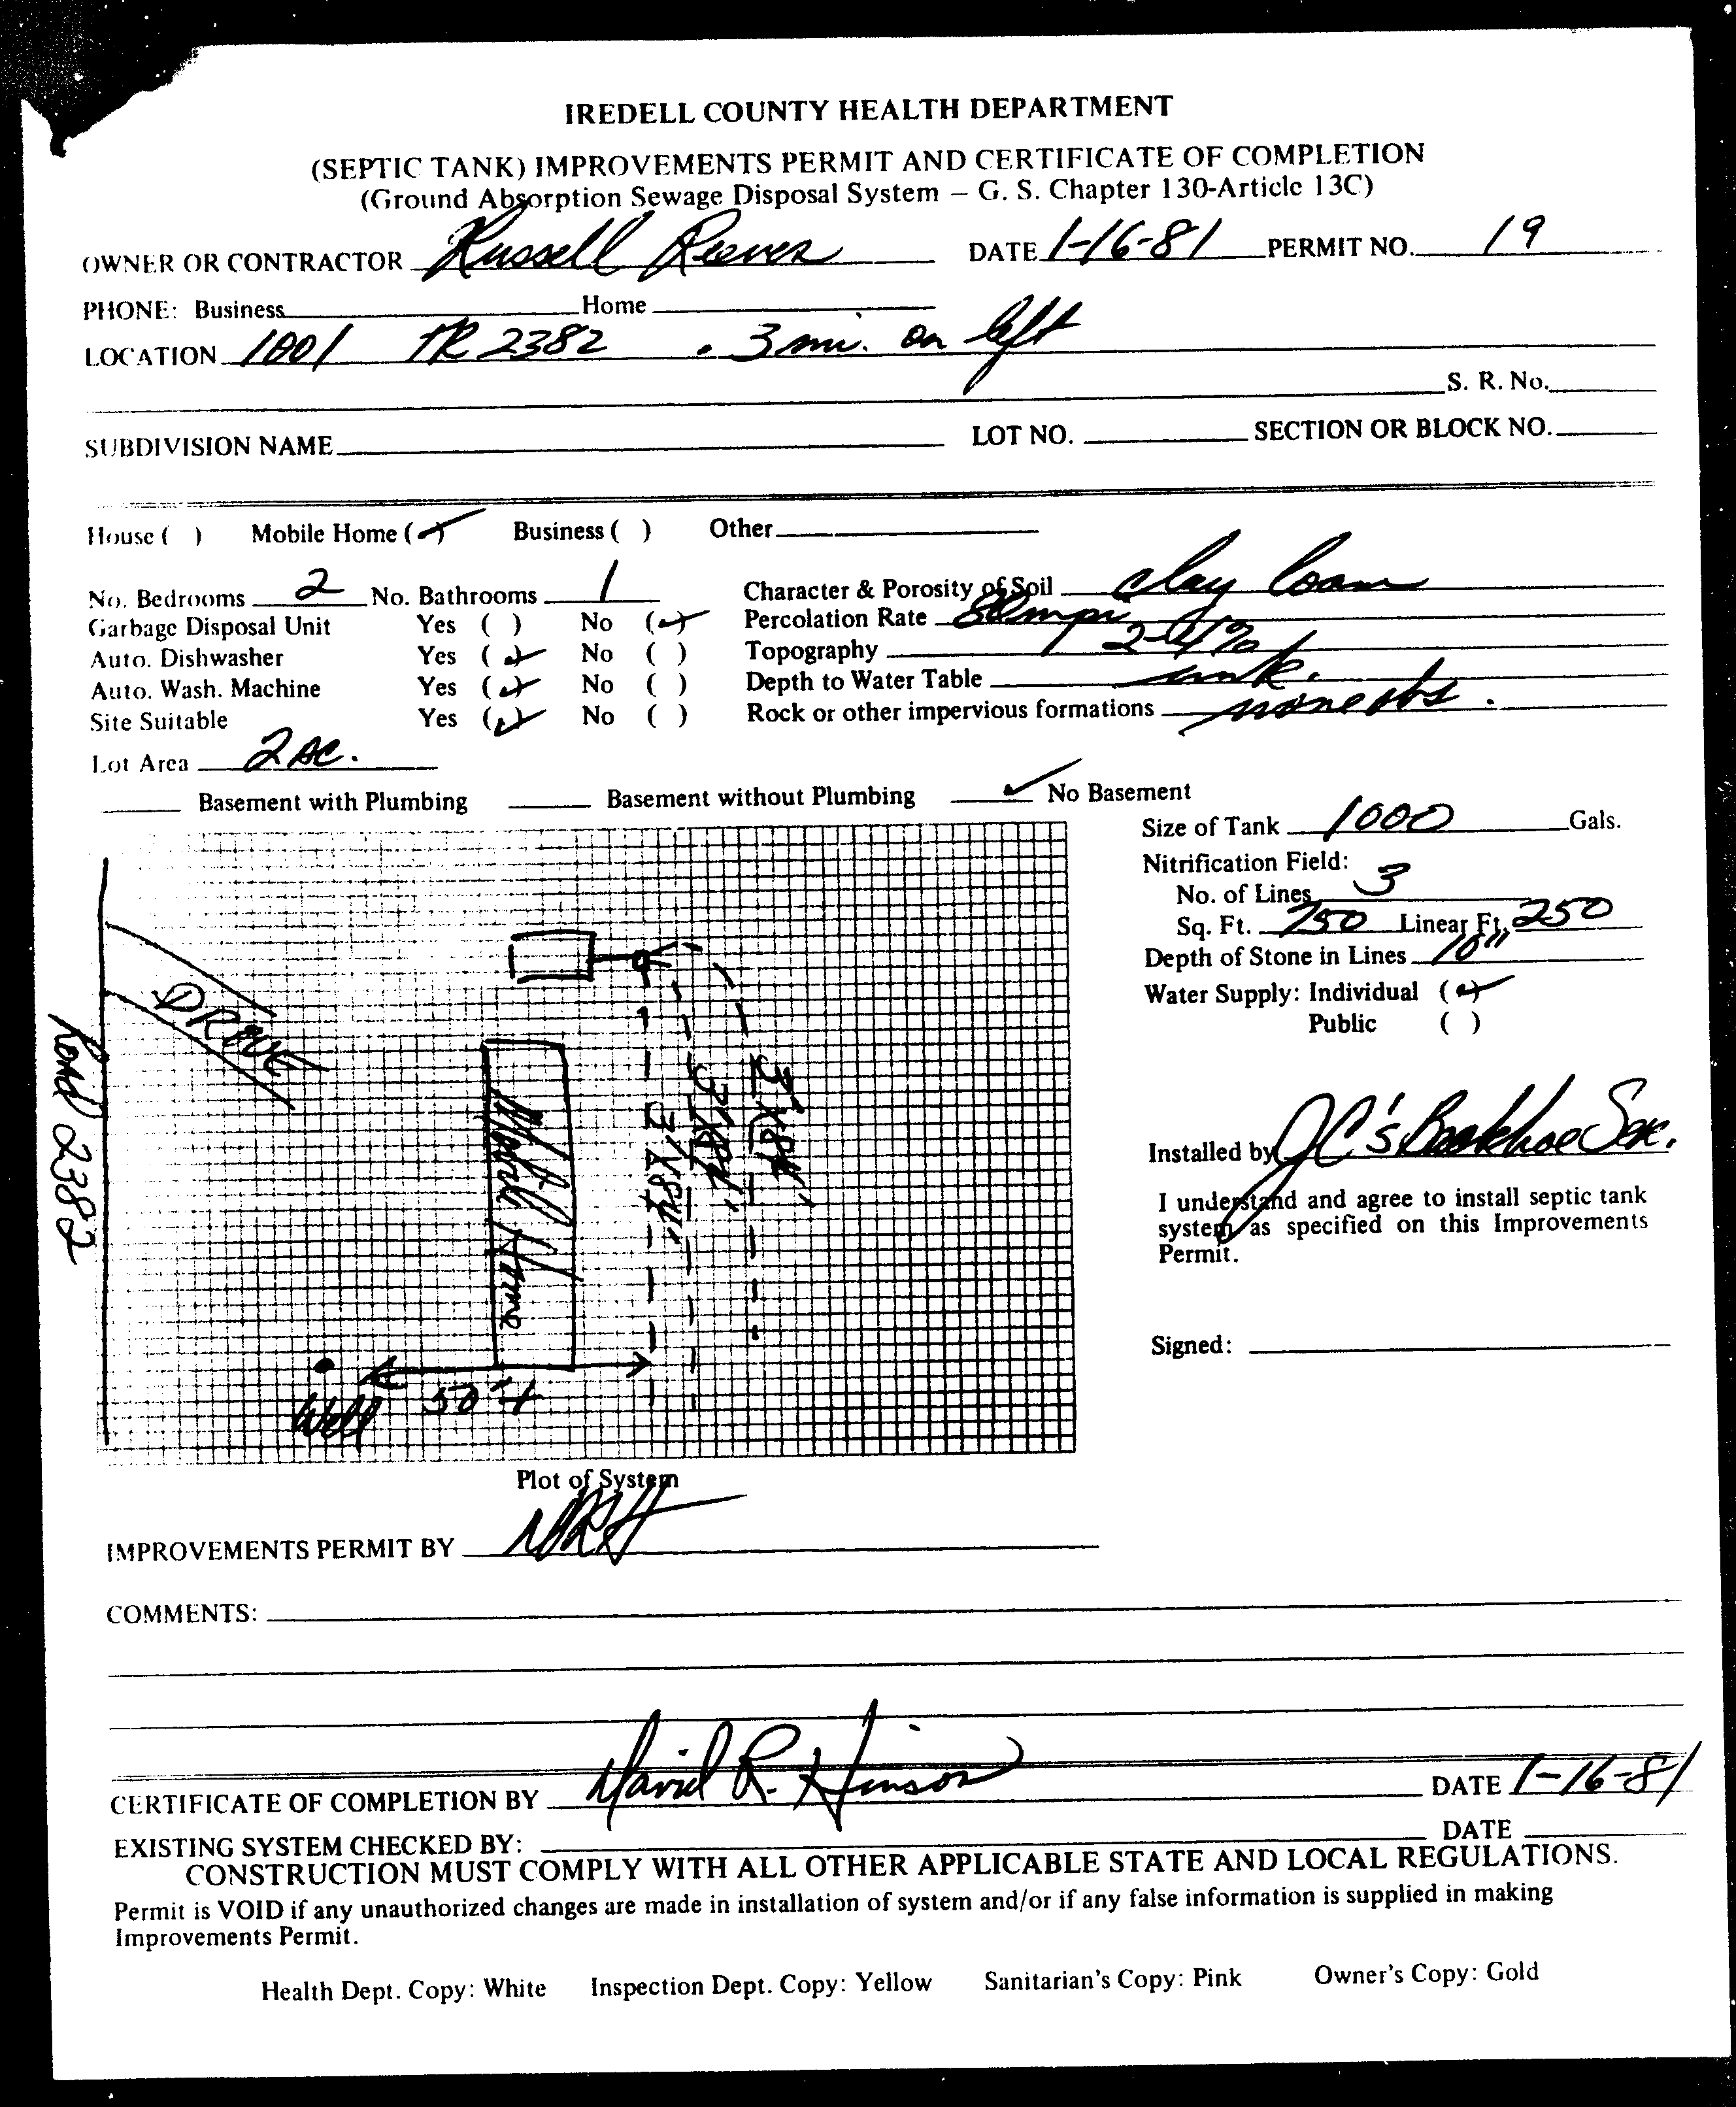 IREDELL COUNTY HEALTH DEPARTMENT
(SEPTIC TANK) IMPROVEMENTS PERMIT AND CERTIFICATE OF COMPLETION
(Ground Absorption Sewage Disposal System – G. S. Chapter 130-Article 13C)
OWNER OR CONTRACTOR Russell Reeves DATE 1-16-81 PERMIT NO. 19
PHONE: Business Home
LOCATION 1001 TR 2382 . 3 mi. on left
S. R. No.
SUBDIVISION NAME LOT NO. SECTION OR BLOCK NO.
House ( ) Mobile Home (✓) Business ( ) Other
No. Bedrooms 2 No. Bathrooms 1 Character & Porosity of Soil clay loam
Garbage Disposal Unit Yes ( ) No (✓) Percolation Rate 80 mpi
Auto. Dishwasher Yes (✓) No ( ) Topography 2-4%
Auto. Wash. Machine Yes (✓) No ( ) Depth to Water Table unk.
Site Suitable Yes (✓) No ( ) Rock or other impervious formations none obs.
Lot Area 2 AC.
Basement with Plumbing Basement without Plumbing ✓ No Basement
Size of Tank 1000 Gals.
Nitrification Field:
No. of Lines 3
Sq. Ft. 750 Linear Ft. 250
Depth of Stone in Lines 10"
Water Supply: Individual (✓)
Public ( )
DRIVE
Road 2382
Mobile Home
3'X84'
3'X84'
3'X84'
Well 50'+
Installed by JC's Backhoe Ser.
I understand and agree to install septic tank
system as specified on this Improvements
Permit.
Signed:
Plot of System
IMPROVEMENTS PERMIT BY DRH
COMMENTS:
CERTIFICATE OF COMPLETION BY David R. Hinson DATE 1-16-81
EXISTING SYSTEM CHECKED BY: DATE
CONSTRUCTION MUST COMPLY WITH ALL OTHER APPLICABLE STATE AND LOCAL REGULATIONS.
Permit is VOID if any unauthorized changes are made in installation of system and/or if any false information is supplied in making
Improvements Permit.
Health Dept. Copy: White Inspection Dept. Copy: Yellow Sanitarian's Copy: Pink Owner's Copy: Gold